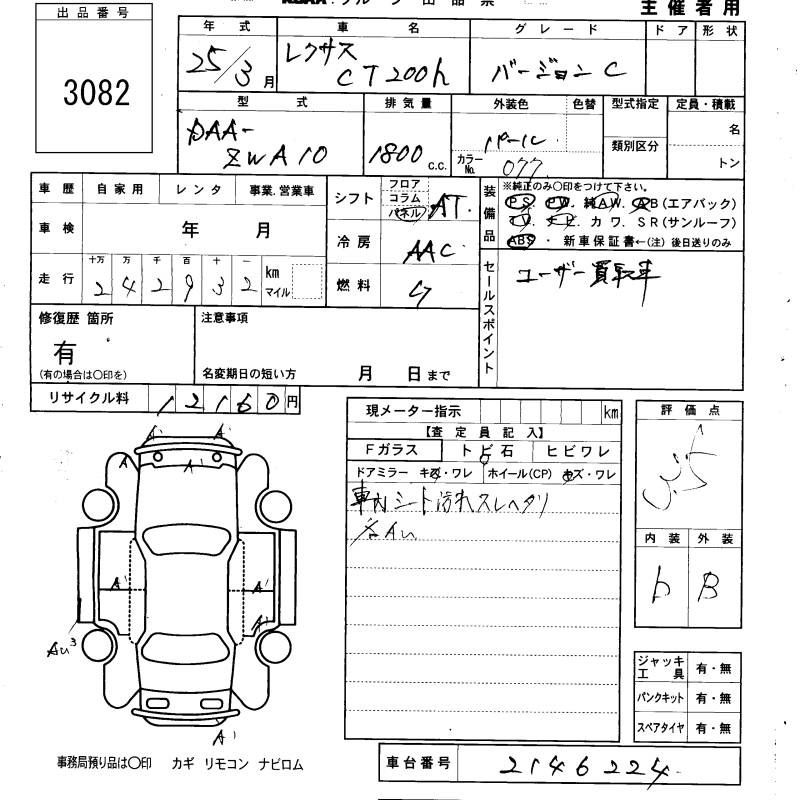 主催者用
出品番号
3082
年式 車名 グレード ドア 形状
25/3月 レクサス CT200h バージョンC
型式 排気量 外装色 色替 型式指定 定員・積載
DAA-ZWA10 1800 C.C. パール カラーNo. 077 類別区分 名 トン
車歴 自家用 レンタ 事業.営業車
車検 年 月
走行 十万 万 千 百 十 一 km マイル
2 4 2 9 3 2
シフト フロア コラム パネル AT
冷房 AAC
燃料 G
装備品 ※純正のみ○印をつけて下さい。
P.S. P.W. 純A.W. A.B(エアバック)
T.V. ナビ カワ. S.R(サンルーフ)
ABS・新車保証書←(注)後日送りのみ
セールスポイント ユーザー買取車
修復歴 箇所
有
(有の場合は○印を)
注意事項
名変期日の短い方 月 日まで
リサイクル料 12160円
現メーター指示 km
【査定員記入】
Fガラス トビ石 ヒビワレ
ドアミラー キズ・ワレ ホイール(CP) キズ・ワレ
車内シート汚れスレヘタリ
各AU
評価点
3.5
内装 外装
b B
A' A'
A A'
A' A'
A'
AU3
A'
ジャッキ工具 有・無
パンクキット 有・無
スペアタイヤ 有・無
事務局預り品は○印 カギ リモコン ナビロム
車台番号 2146224